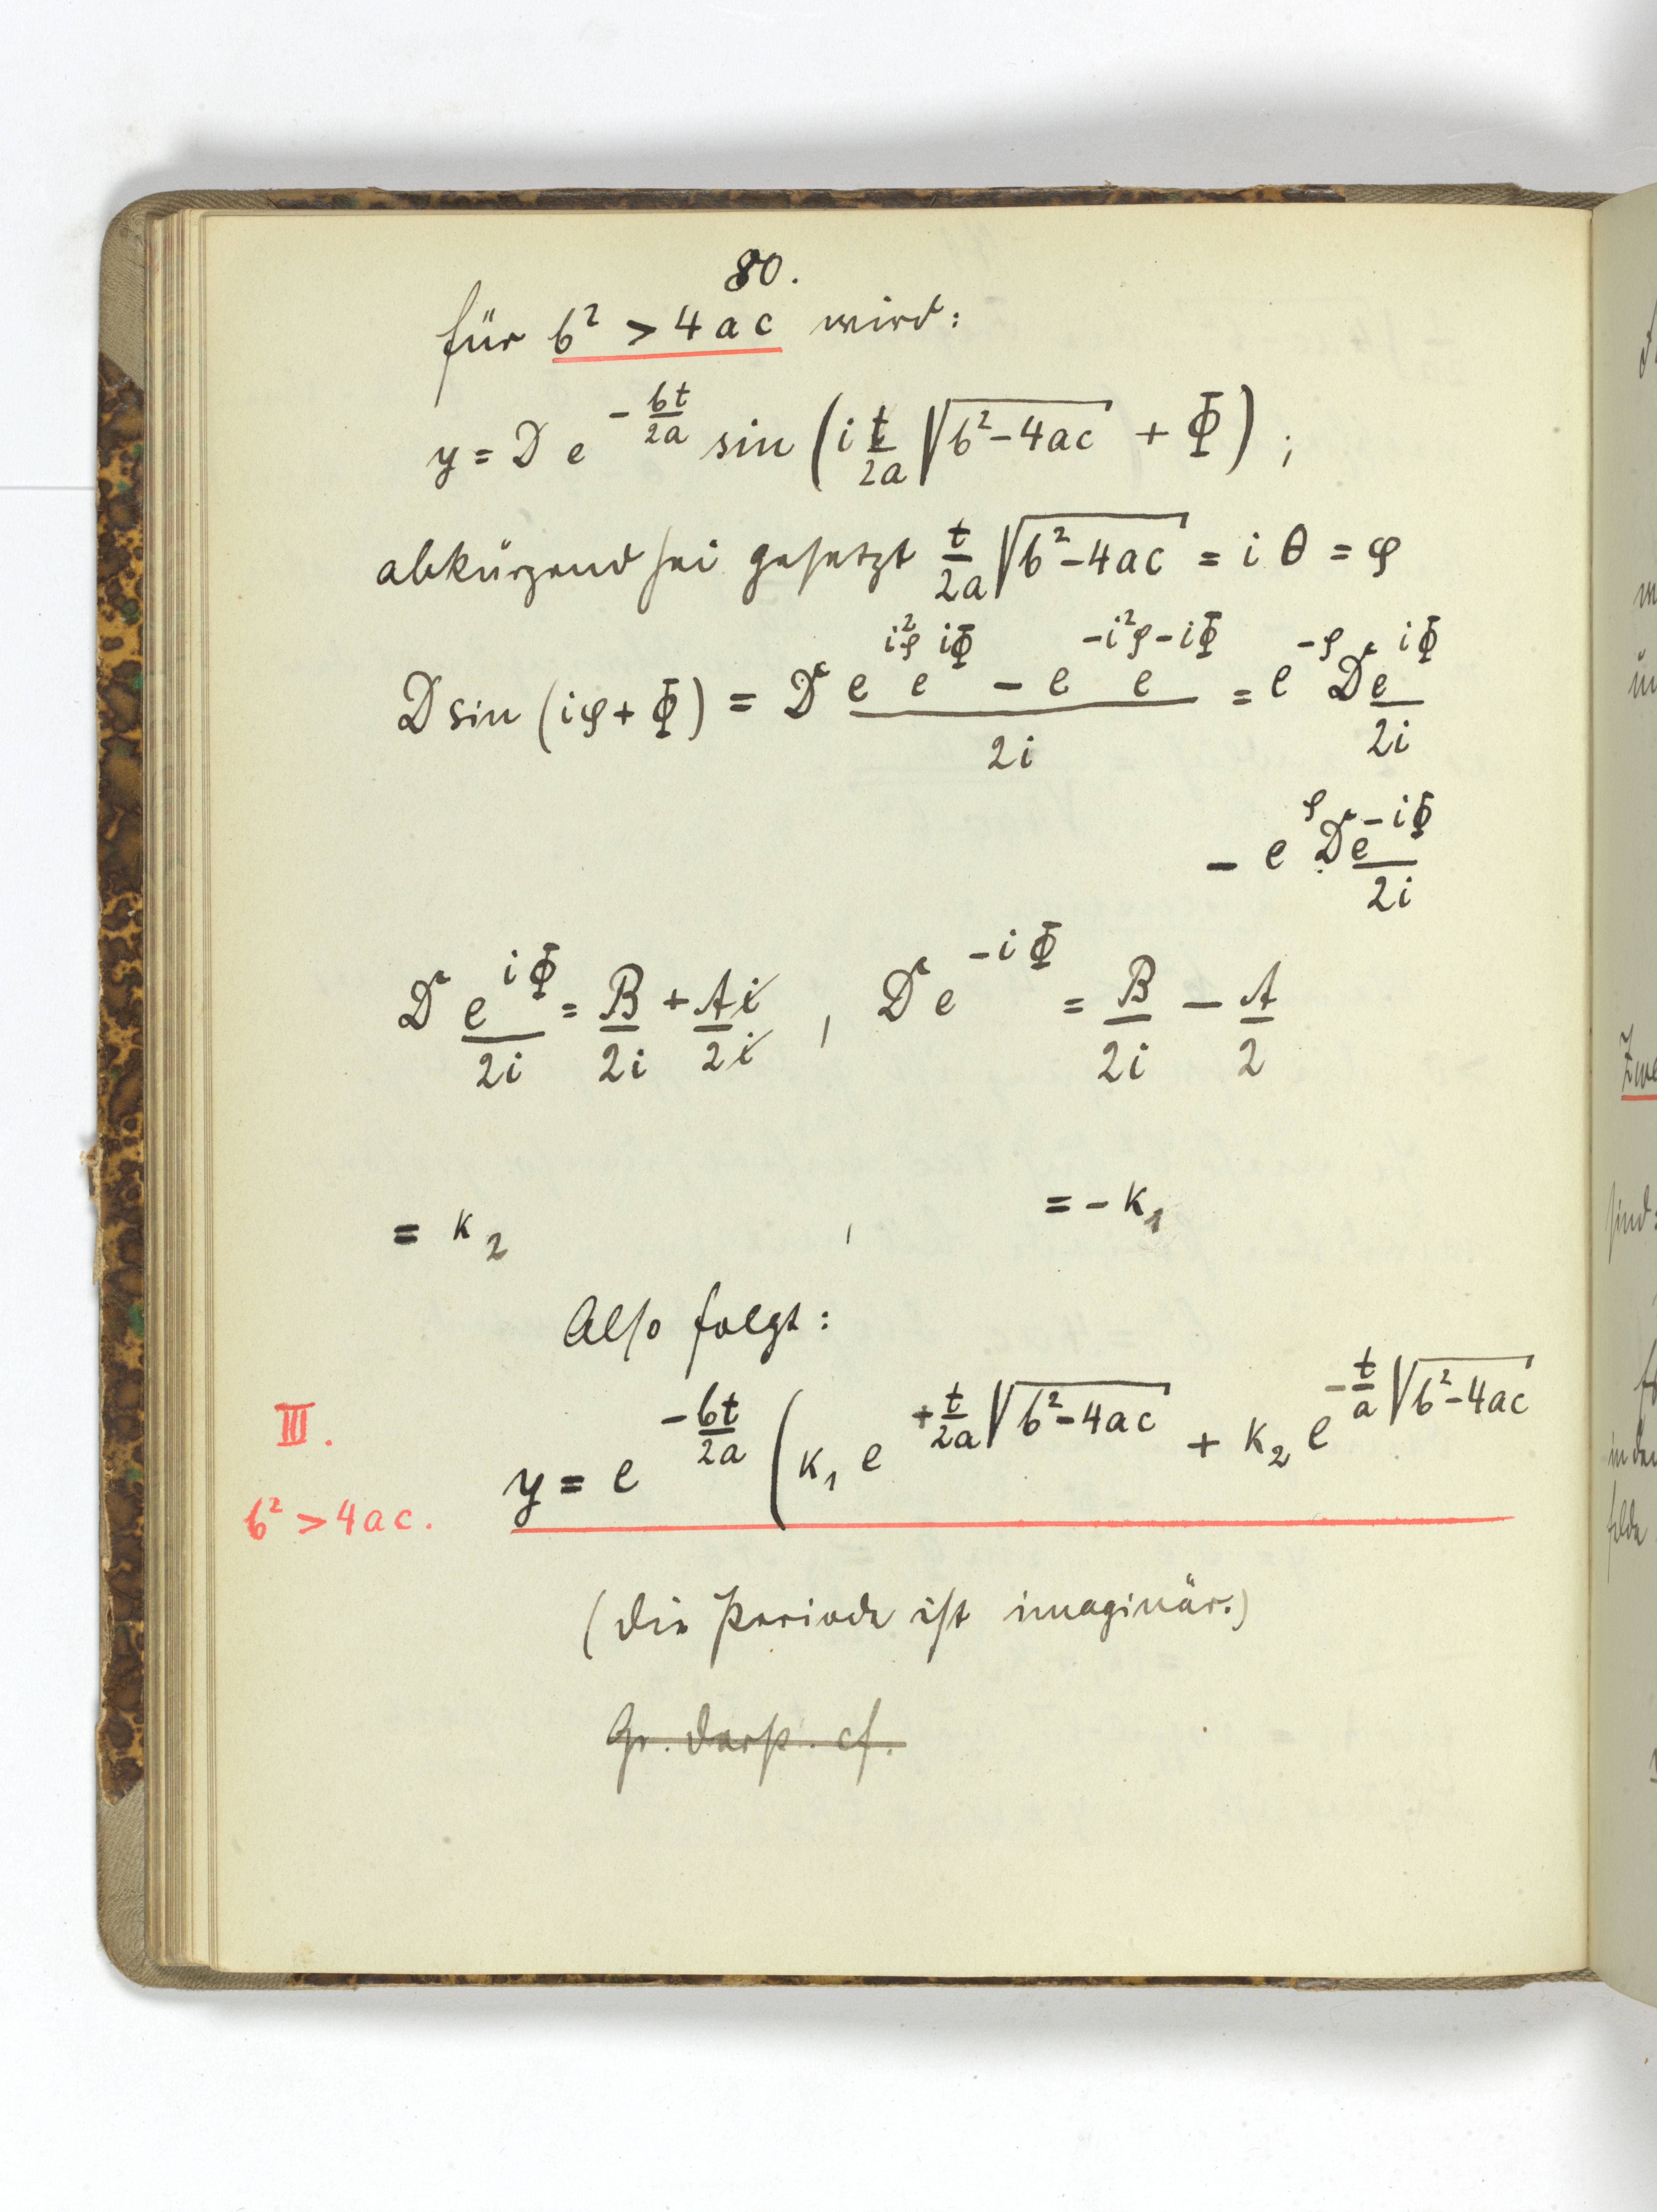 80.
für b² > 4ac wird:
y = D e^{-bt/2a} sin (i t/2a √(b²-4ac) + Φ) ;
abkürzend sei gesetzt t/2a √(b²-4ac) = i θ = φ
D sin (iφ + Φ) = D (e^{i²φ} e^{iΦ} - e^{-i²φ} e^{-iΦ})/2i = e^{-φ} D e^{iΦ}/2i
- e^{φ} D e^{-iΦ}/2i
D e^{iΦ}/2i = B/2i + Ai/2i , D e^{-iΦ} = B/2i - A/2
= K₂ , = - K₁
Also folgt:
III.
y = e^{-bt/2a} (K₁ e^{+t/2a √(b²-4ac)} + K₂ e^{-t/a √(b²-4ac)}
b² > 4ac.
(die Periode ist imaginär.)
Gr. Darst. cf.